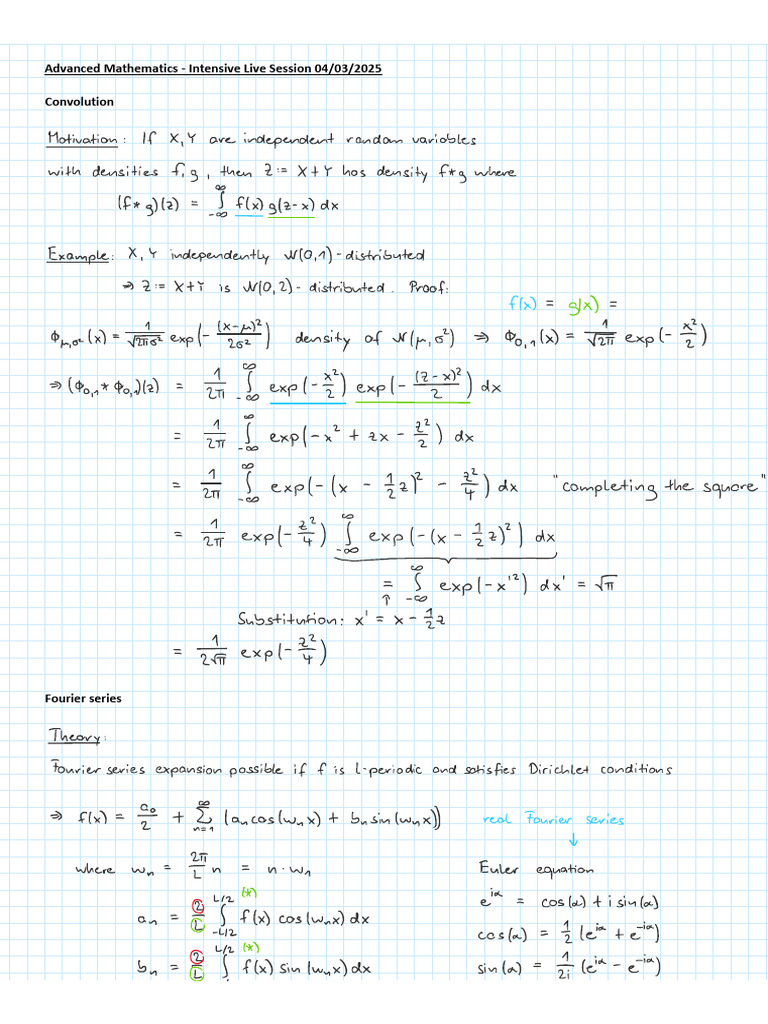 Advanced Mathematics - Intensive Live Session 04/03/2025
Convolution
Motivation: If X, Y are independent random variables
with densities f, g, then Z := X + Y has density f * g where
(f * g)(z) = ∫_{-∞}^{∞} f(x) g(z-x) dx
Example: X, Y independently N(0,1)-distributed
⇒ Z := X + Y is N(0,2)-distributed. Proof:
f(x) = g(x) =
Φ_{μ,σ²}(x) = 1/√(2πσ²) exp(-(x-μ)²/2σ²) density of N(μ,σ²) ⇒ Φ_{0,1}(x) = 1/√(2π) exp(-x²/2)
⇒ (Φ_{0,1} * Φ_{0,1})(z) = 1/2π ∫_{-∞}^{∞} exp(-x²/2) exp(-(z-x)²/2) dx
= 1/2π ∫_{-∞}^{∞} exp(-x² + zx - z²/2) dx
= 1/2π ∫_{-∞}^{∞} exp(-(x - 1/2 z)² - z²/4) dx "completing the square"
= 1/2π exp(-z²/4) ∫_{-∞}^{∞} exp(-(x - 1/2 z)²) dx
= ∫_{-∞}^{∞} exp(-x'²) dx' = √π
↑
Substitution: x' = x - 1/2 z
= 1/(2√π) exp(-z²/4)
Fourier series
Theory:
Fourier series expansion possible if f is L-periodic and satisfies Dirichlet conditions
⇒ f(x) = a₀/2 + ∑_{n=1}^{∞} (aₙ cos(wₙx) + bₙ sin(wₙx)) real Fourier series
↓
where wₙ = 2π/L n = n · w₁ Euler equation
e^{iα} = cos(α) + i sin(α)
aₙ = 2/L ∫_{-L/2}^{L/2} (*) f(x) cos(wₙx) dx
cos(α) = 1/2 (e^{iα} + e^{-iα})
bₙ = 2/L ∫^{L/2} (*) f(x) sin(wₙx) dx
sin(α) = 1/2i (e^{iα} - e^{-iα})